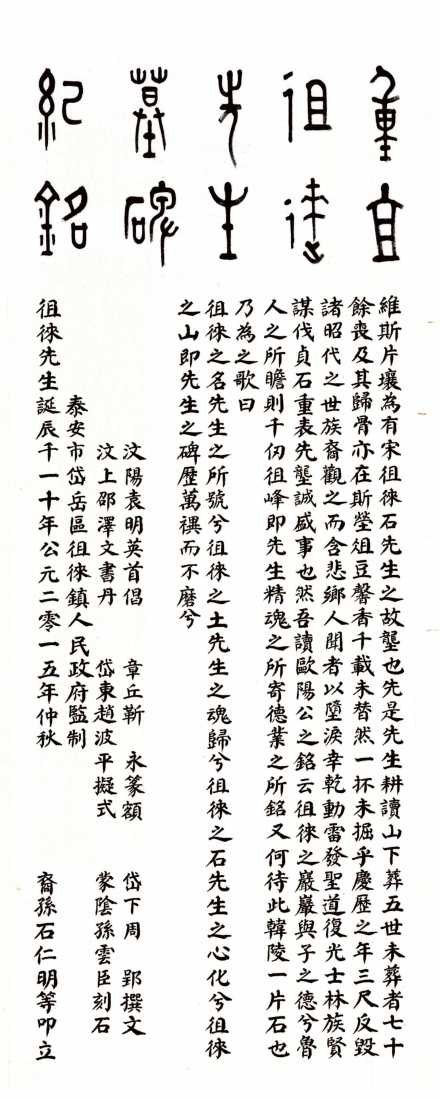 重
徂徠
先生
墓碑
紀銘
維斯片壤為有宋徂徠石先生之故壟也先是先生耕讀山下葬五世未葬者七十
餘喪及其歸骨亦在斯塋俎豆馨香千載未替然一抔未掘乎慶歷之年三尺反毀
諸昭代之世族裔觀之而含悲鄉人聞者以墮淚幸乾動雷發聖道復光士林族賢
謀伐貞石重表先壟誠盛事也然吾讀歐陽公之銘云徂徠之巖巖與子之德兮魯
人之所瞻則千仞徂峰即先生精魂之所寄德業之所銘又何待此韓陵一片石也
乃為之歌曰
徂徠之名先生之所號兮徂徠之土先生之魂歸兮徂徠之石先生之心化兮徂徠
之山即先生之碑歷萬禩而不磨兮
汶陽袁明英首倡 章丘靳永篆額 岱下周郢撰文
汶上邵澤文書丹 岱東趙波平擬式 蒙陰孫雲臣刻石
泰安市岱岳區徂徠鎮人民政府監制
徂徠先生誕辰千一十年公元二零一五年仲秋 裔孫石仁明等叩立